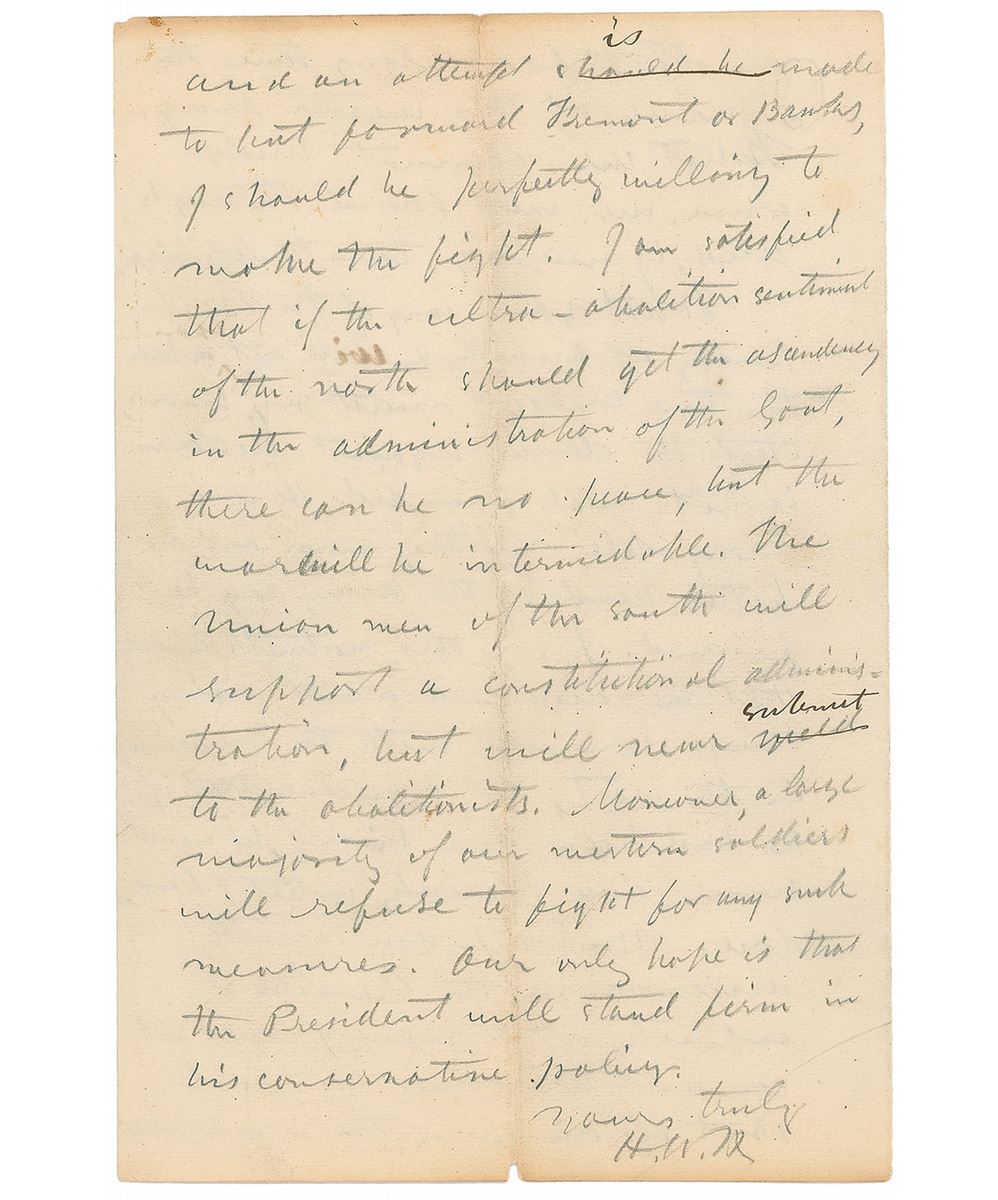 is
and an attempt should be made
to put forward Fremont or Banks,
I should be perfectly willing to
make the fight. I am satisfied
that if the ultra-abolition sentiment
of the north should get the ascendency
in the administration of the Govt,
there can be no peace, but the
war will be interminable. The
Union men of the south will
support a constitutional adminis-
submit
tration, but will never yield
to the abolitionists. Moreover, a large
majority of our western soldiers
will refuse to fight for any such
measures. Our only hope is that
the President will stand firm in
his conservative policy.
Yours truly
H.W.H